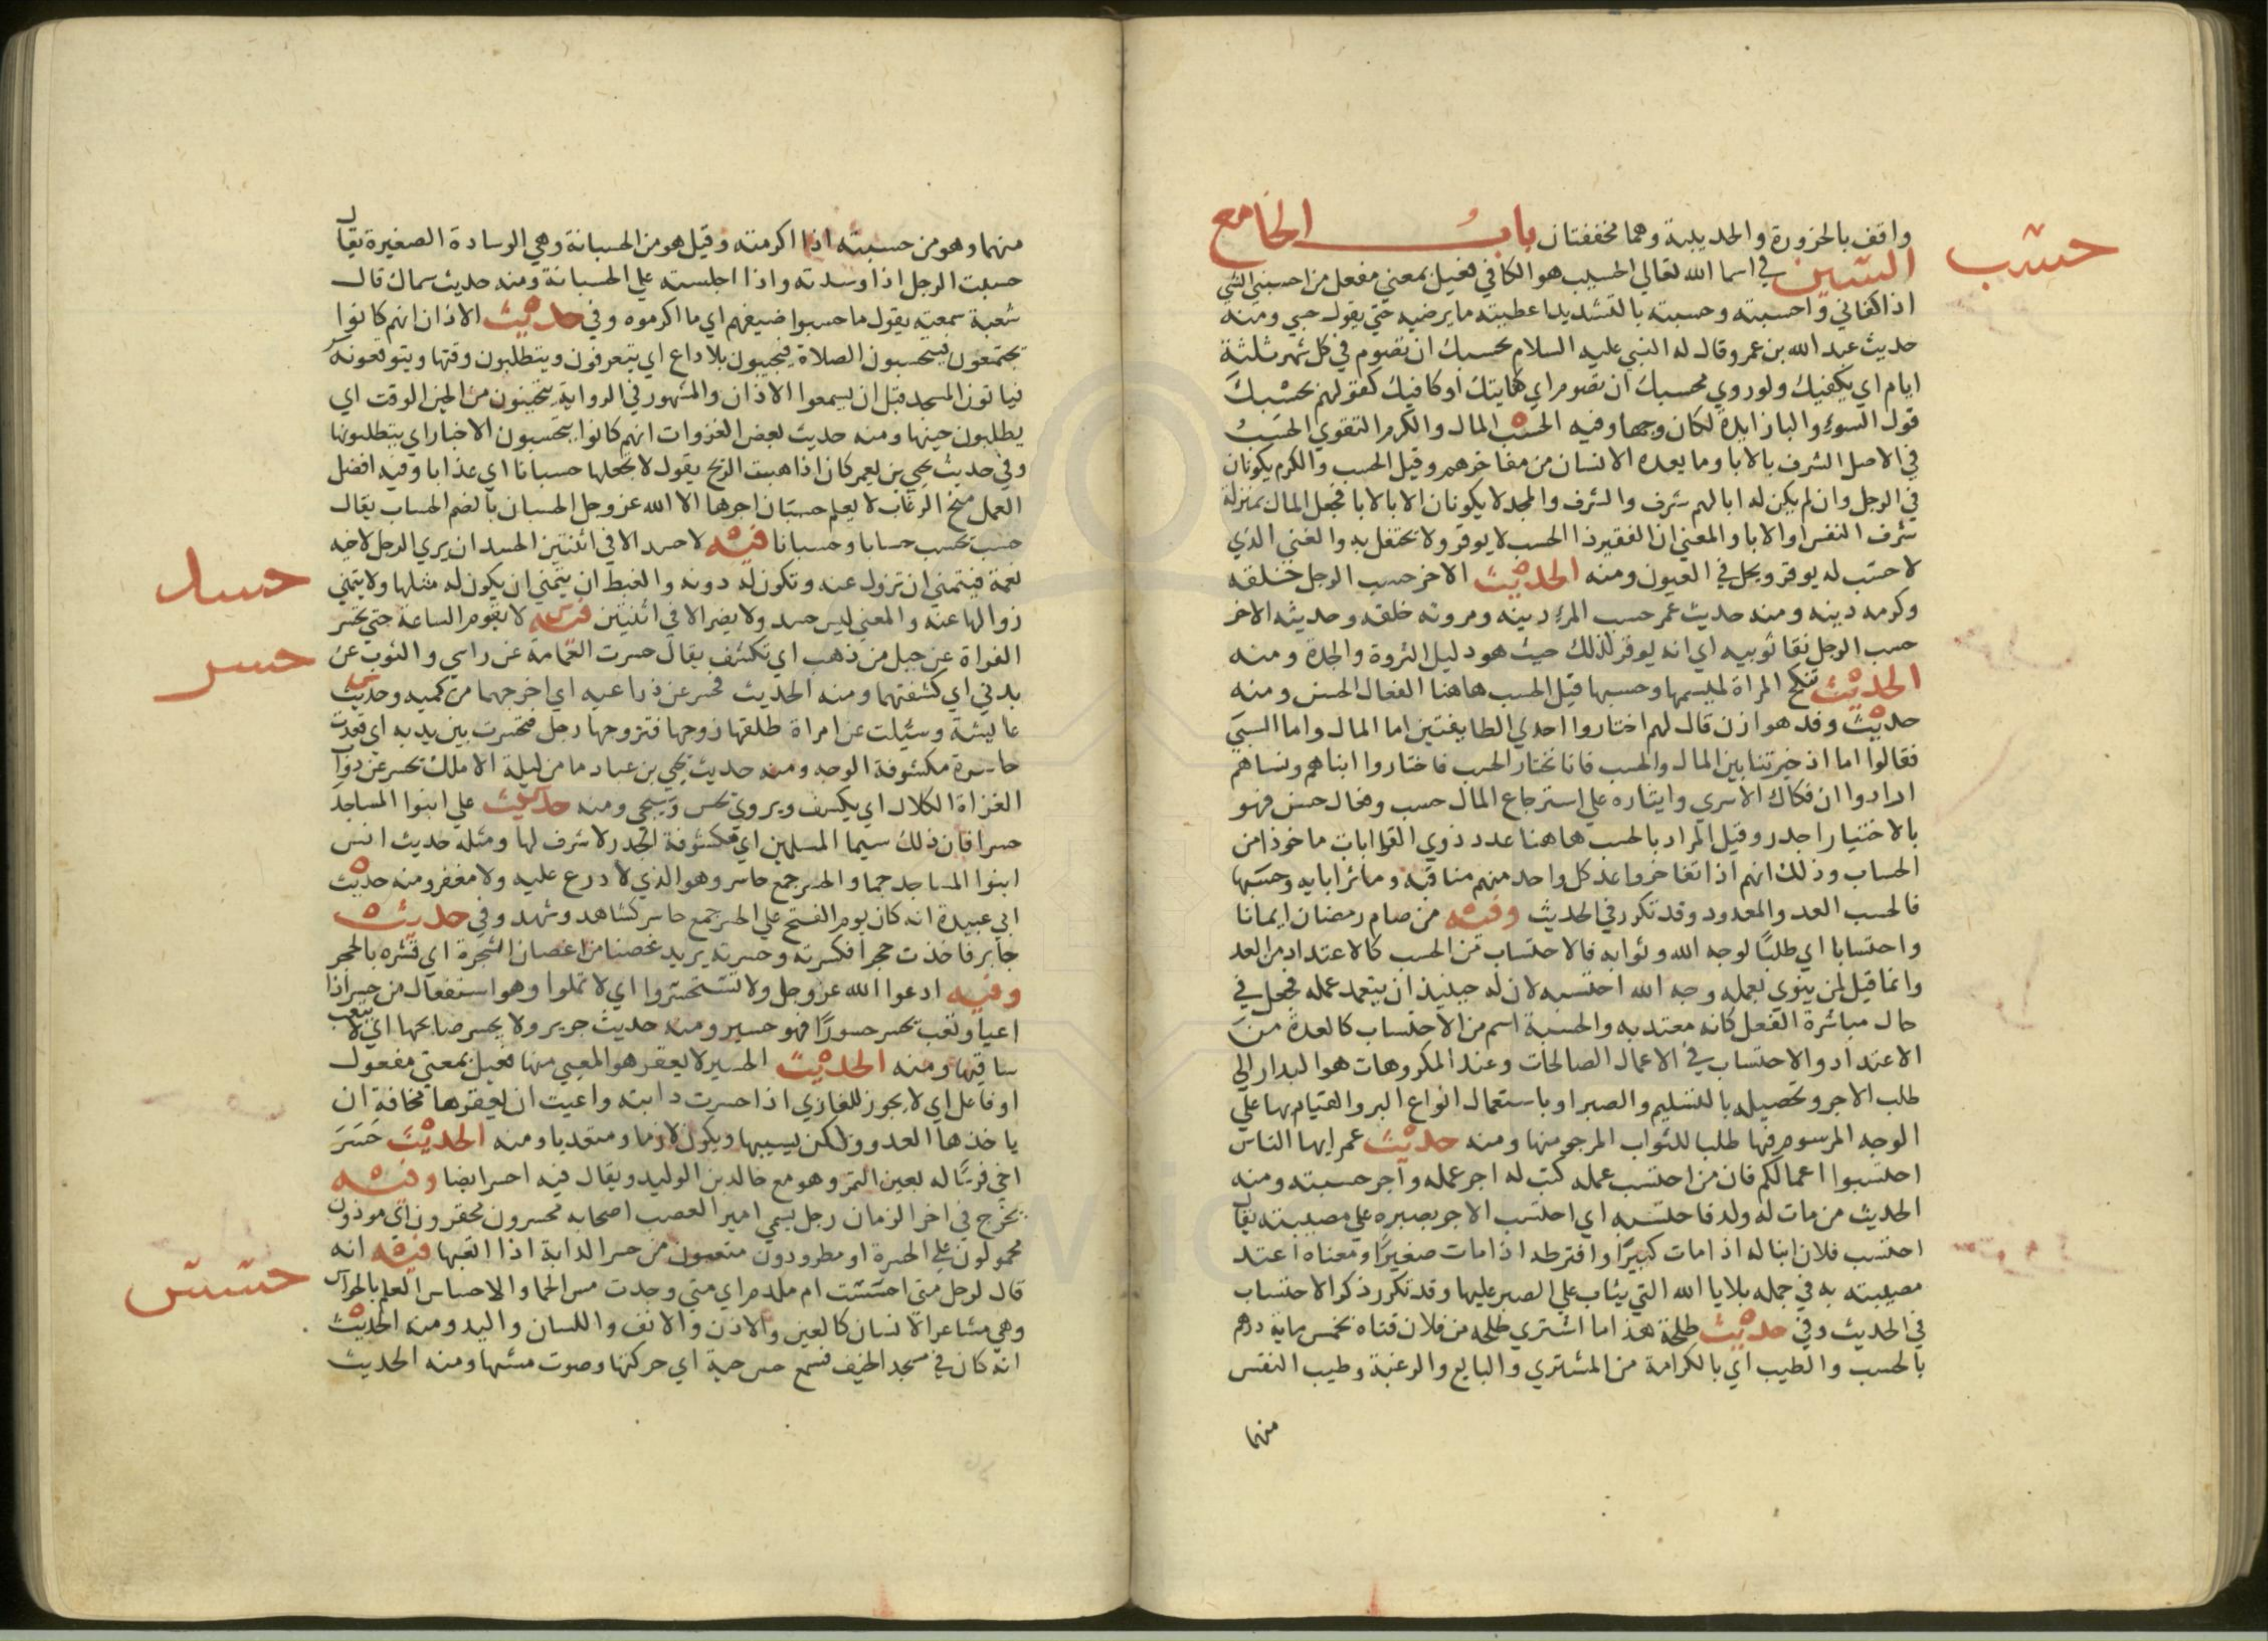 حسب
واقف بالحزورة والحديبية وهما مخففتان باب الحا مع
السين في اسما الله تعالي الحسيب هو الكافي فعيل بمعني مفعل من احسبني الشي
اذا كفاني واحسبته وحسبته بالتشديد اعطيته ما يرضيه حتي يقول حسبي ومنه
حديث عبد الله بن عمر وقال له النبي عليه السلام يحسبك ان تصوم في كل شهر ثلثة
ايام اي يكفيك ولو روي بحسبك ان تصوم اي كفايتك او كافيك كقولهم بحسبك
قول السوء والبا زايدة لكان وجها وفيه الحسب المال والكرم التقوي الحسب
في الاصل الشرف بالابا وما يعده الانسان من مفاخرهم وقيل الحسب والكرم يكونان
في الرجل وان لم يكن له ابا لهم شرف والشرف والمجد لا يكونان الا بالابا فجعل المال بمنزلة
شرف النفس او الابا والمعني ان الفقير ذا الحسب لا يوقر ولا يحتفل به والغني الذي
لا حسب له يوقر ويجل في العيون ومنه الحديث الاخر حسب الرجل خلقه
وكرمه دينه ومنه حديث عمر حسب المرء دينه ومروته خلقه وحديثه الاخر
حسب الرجل نقا ثوبيه اي انه يوقر لذلك حيث هو دليل الثروة والجدة ومنه
الحديث تنكح المراة لميسمها وحسبها قيل الحسب هاهنا الفعال الحسن ومنه
حديث وفد هوازن قال لهم اختاروا احدي الطايفتين اما المال واما السبي
فقالوا اما اذ خيرتنا بين المال والحسب فانا نختار الحسب فاختاروا ابناهم ونساهم
ارادوا ان فكاك الاسري وايثاره علي استرجاع المال حسب وفعال حسن فهو
بالاختيار اجدر وقيل المراد بالحسب هاهنا عدد ذوي القرابات ماخوذا من
الحساب وذلك انهم اذا تفاخروا عد كل واحد منهم مناقبه ومآثر ابايه وحسبها
فالحسب العد والمعدود وقد تكرر في الحديث وفيه من صام رمضان ايمانا
واحتسابا اي طلبا لوجه الله وثوابه فالاحتساب من الحسب كالاعتداد من العد
وانما قيل لمن ينوي بعمله وجه الله احتسبه لان له حينيذ ان يعتد عمله فجعل في
حال مباشرة الفعل كانه معتد به والحسبة اسم من الاحتساب كالعدة من
الاعتداد والاحتساب في الاعمال الصالحات وعند المكروهات هو البدار الي
طلب الاجر وتحصيله بالتسليم والصبر او باستعمال انواع البر والقيام بها علي
الوجه المرسوم فيها طلبا للثواب المرجو منها ومنه حديث عمر ايها الناس
احتسبوا اعمالكم فان من احتسب عمله كتب له اجر عمله وآجر حسبته ومنه
الحديث من مات له ولد فاحتسبه اي احتسب الاجر بصبره علي مصيبته يقال
احتسب فلان ابنا له اذا مات كبيرا وافترطه اذا مات صغيرا ومعناه اعتد
مصيبته به في جملة بلايا الله التي يثاب علي الصبر عليها وقد تكرر ذكر الاحتساب
في الحديث وفي حديث طلحة هذا ما اشتري طلحة من فلان فتاه بخمس ماية درهم
بالحسب والطيب اي بالكرامة من المشتري والبايع والرغبة وطيب النفس
منهما
منهما وهو من حسبته اذا اكرمته وقيل هو من الحسبانة وهي الوسادة الصغيرة يقال
حسبت الرجل اذا وسدته واذا اجلسته علي الحسبانة ومنه حديث سماك قال
شعبة سمعته يقول ما حسبوا ضيفهم اي ما اكرموه وفي حديث الاذان انهم كانوا
يجتمعون فيتحسبون الصلاة فيجيبون بلا داع اي يتعرفون ويتطلبون وقتها ويتوقعونه
فياتون المسجد قبل ان يسمعوا الاذان والمشهور في الرواية يتحينون من الحين الوقت اي
يطلبون حينها ومنه حديث بعض الغزوات انهم كانوا يتحسبون الاخبار اي يتطلبونها
وفي حديث يحيي بن يعمر كان اذا هبت الريح يقول لا تجعلها حسبانا اي عذابا وفيه افضل
العمل منح الرغاب لا يعلم حسبان اجرها الا الله عز وجل الحسبان بالضم الحساب يقال
حسب يحسب حسابا وحسبانا فيه لا حسد الا في اثنتين الحسد ان يري الرجل لاخيه
حسد
نعمة فيتمني ان تزول عنه وتكون له دونه والغبط ان يتمني ان يكون له مثلها ولا يتمني
زوالها عنه والمعني ليس حسد ولا يضر الا في اثنتين فيه لا تقوم الساعة حتي يحسر
حسر
الفراة عن جبل من ذهب اي تكشف يقال حسرت العمامة عن راسي والثوب عن
بدني اي كشفتهما ومنه الحديث فحسر عن ذراعيه اي اخرجهما من كميه وحديث
عايشة وسيلت عن امراة طلقها زوجها فتزوجها رجل فتحسرت بين يديه اي قعدت
حاسرة مكشوفة الوجه ومنه حديث يحيي بن عباد ما من ليلة الا ملك يحسر عن دواب
الغزاة الكلال اي يكشف ويروي يحس وسيجي ومنه حديث علي ابنوا المساجد
حسرا فان ذلك سيما المسلمين اي مكشوفة الجدر لا شرف لها ومثله حديث انس
ابنوا المساجد جما والحسر جمع حاسر وهو الذي لا درع عليه ولا مغفر ومنه حديث
ابي عبيدة انه كان يوم الفتح علي الحسر جمع حاسر كشاهد وشهد وفي حديث
جابر فاخذت حجرا فكسرته وحسرته يريد غصنا من اغصان الشجرة اي قشره بالحجر
وفيه ادعوا الله عز وجل ولا تستحسروا اي لا تملوا وهو استفعال من حسر اذا
اعيا وتعب يحسر حسورا فهو حسير ومنه حديث جرير ولا يحسر صابحها اي لا يتعب
ساقيها ومنه الحديث الحسير لا يعقر هو المعيي منها فعيل بمعني مفعول
او فاعل اي لا يجوز للغازي اذا حسرت دابته واعيت ان يعقرها مخافة ان
ياخذها العدو ولكن يسيبها ويكون لازما ومتعديا ومنه الحديث حسر
اخي فرسا له بعين التمر وهو مع خالد بن الوليد ويقال فيه احسر ايضا وفيه
يخرج في اخر الزمان رجل يسمي امير العصب اصحابه محسرون محقرون اي موذون
محمولون علي الحسرة او مطرودون متعبون من حسر الدابة اذا اتعبها فيه انه
حسس
قال لرجل متي احسست ام ملدم اي متي وجدت مس الحما والاحساس العلم بالحواس
وهي مشاعر الانسان كالعين والاذن والانف واللسان واليد ومنه الحديث
انه كان في مسجد الخيف فسمع حس حية اي حركتها وصوت مشيها ومنه الحديث